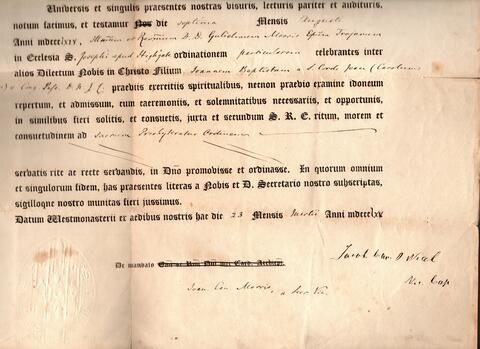 Universis et singulis praesentes nostras visuris, lecturis pariter et audituris,
notum facimus, et testamur Nos die septima Mensis Augusti
Anni mdccclxiv, Illmum et Rermum D. D. Gulielmum Morris Epum Trojanum
in Ecclesia S. Josephi apud Highgate ordinationem particularem celebrantes inter
alios Dilectum Nobis in Christo Filium Joannem Baptistam a S. Corde Jesu (Carolum
) e Cong Pass. D. N. J. C. praeviis exercitiis spiritualibus, necnon praevio examine idoneum
repertum, et admissum, cum caeremoniis, et solemnitatibus necessariis, et opportunis,
in similibus fieri solitis, et consuetis, juxta et secundum S. R. E. ritum, morem et
consuetudinem ad Sacrum Presbyteratus Ordinem
servatis rite ac recte servandis, in Dño promovisse et ordinasse. In quorum omnium
et singulorum fidem, has praesentes literas a Nobis et D. Secretario nostro subscriptas,
sigilloque nostro munitas fieri jussimus.
Datum Westmonasterii ex aedibus nostris hac die 23 Mensis Martii Anni mdccclxv
De mandato
Joan. Can. Morris, a Secr
Jacob Can. O'Neal
Vic. Cap